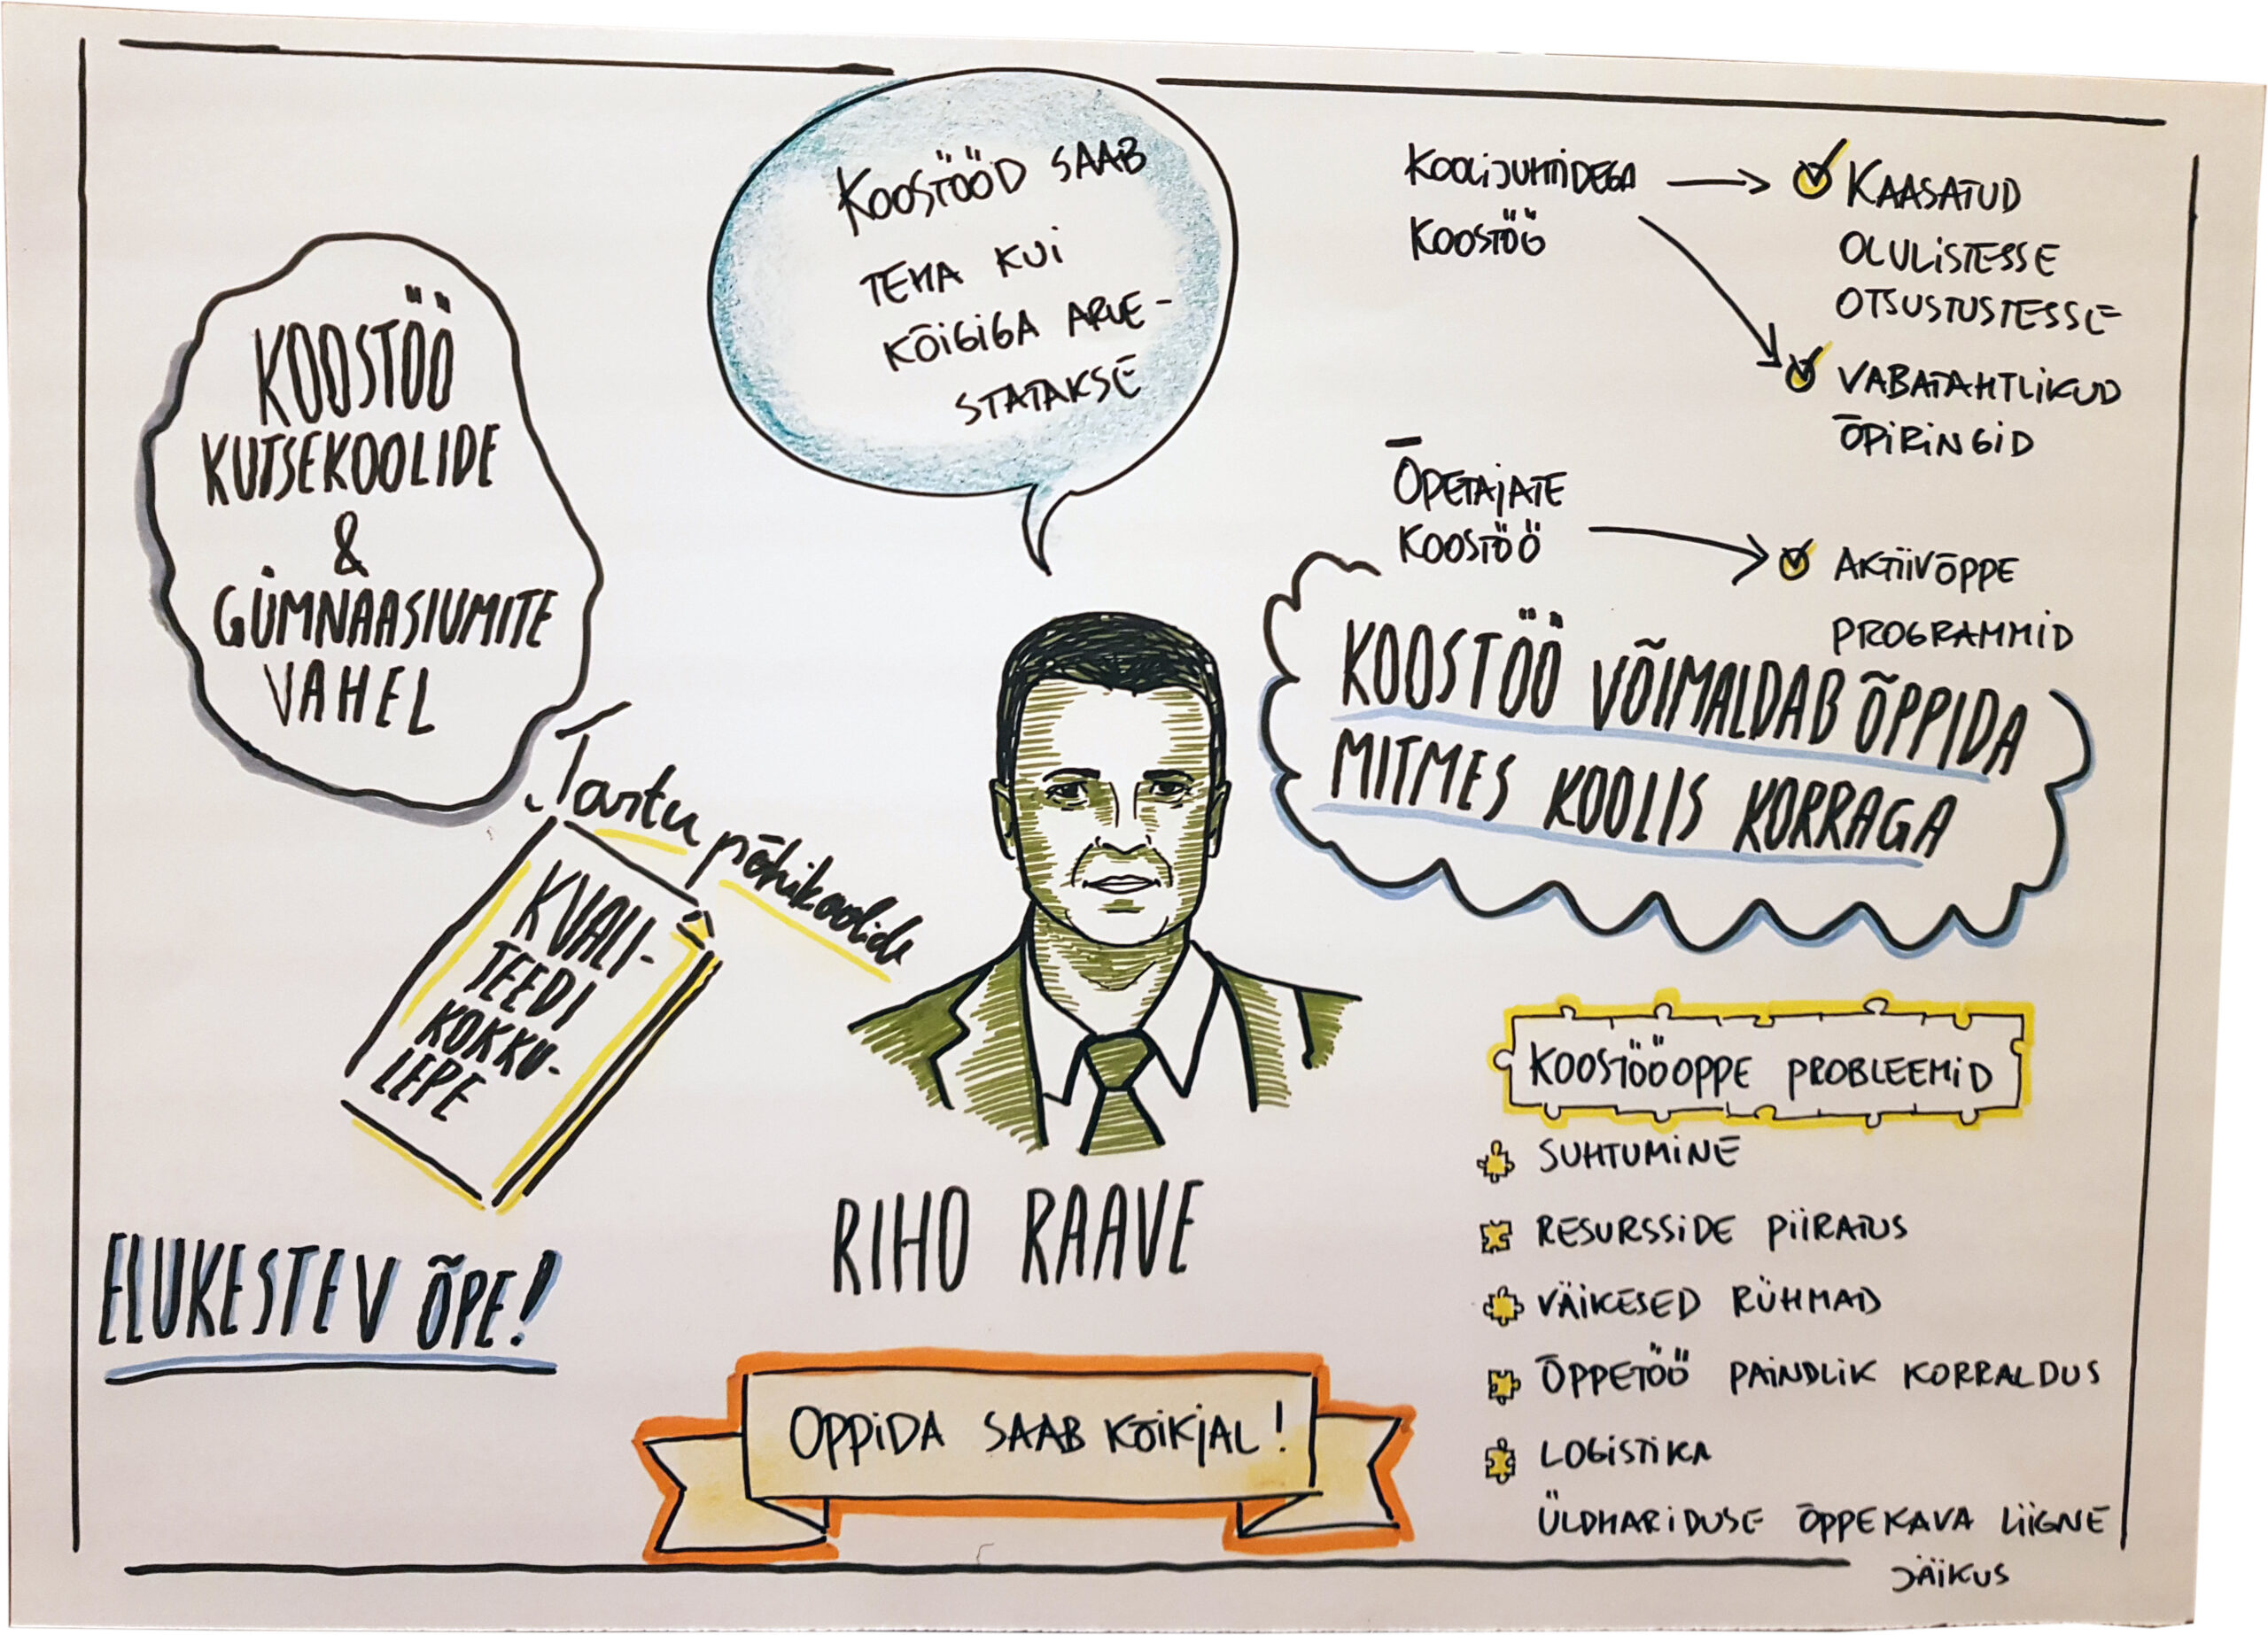 KOOSTÖÖ
KUTSEKOOLIDE
&
GÜMNAASIUMITE
VAHEL
KOOSTÖÖD SAAB
TEHA KUI
KÕIGIGA ARVE-
STATAKSE
KOOLIJUHTIDEGA
KOOSTÖÖ
KAASATUD
OLULISTESSE
OTSUSTUSTESSE
VABATAHTLIKUD
ÕPIRINGID
ÕPETAJATE
KOOSTÖÖ
AKTIIVÕPPE
PROGRAMMID
KOOSTÖÖ VÕIMALDAB ÕPPIDA
MITMES KOOLIS KORRAGA
Tartu põhikoolide
KVALI-
TEEDI
KOKKU-
LEPE
RIHO RAAVE
ELUKESTEV ÕPE!
OPPIDA SAAB KÕIKJAL!
KOOSTÖÖOPPE PROBLEEMID
SUHTUMINE
RESURSSIDE PIIRATUS
VÄIKESED RÜHMAD
ÕPPETÖÖ PAINDLIK KORRALDUS
LOGISTIKA
ÜLDHARIDUSE ÕPPEKAVA LIIGNE
JÄIKUS